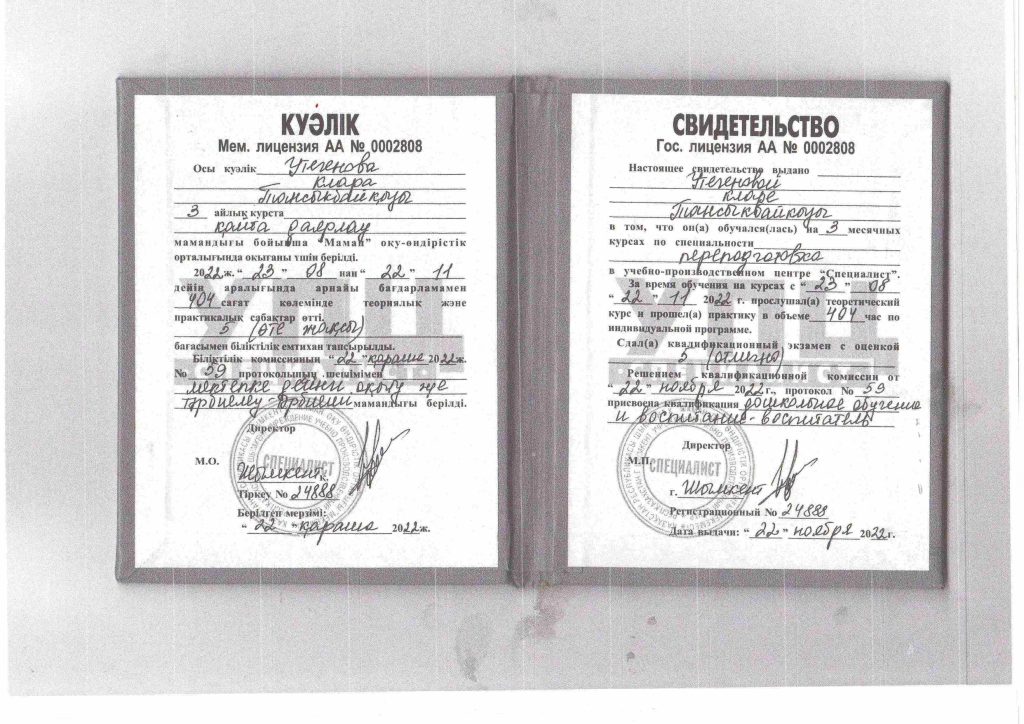 КУӘЛІК
Мем. лицензия АА № 0002808
Осы куәлік Утегенова
Клара
Тынсыкбайқызы
3 айлық курста
қайта даярлау
мамандығы бойынша "Маман" оқу-өндірістік
орталығында оқығаны үшін берілді.
2022ж. "23" 08 нан "22" 11
дейін аралығында арнайы бағдарламамен
404 сағат көлемінде теориялық және
практикалық сабақтар өтті.
5 (өте жақсы)
бағасымен біліктілік емтихан тапсырылды.
Біліктілік комиссияның "22" қараша 2022ж.
№ 59 протоколының шешімімен
мектепке дейінгі оқыту және
тәрбиелеу-тәрбиеші мамандығы берілді.
Директор
М.О.
СПЕЦИАЛИСТ
Шымкент қ.
Тіркеу № 24888
Берілген мерзімі:
"22" қараша 2022ж.
СВИДЕТЕЛЬСТВО
Гос. лицензия АА № 0002808
Настоящее свидетельство выдано
Утегеновой
Кларе
Тынсыкбайқызы
в том, что он(а) обучался(лась) на 3 месячных
курсах по специальности
переподготовка
в учебно-производственном центре "Специалист".
За время обучения на курсах с "23" 08
"22" 11 2022 г. прослушал(а) теоретический
курс и прошел(а) практику в объеме 404 час по
индивидуальной программе.
Сдал(а) квадификационный экзамен с оценкой
5 (отлично)
Решением квалификационной комиссии от
"22" ноября 2022г., протокол № 59
присвоена квалификация дошкольное обучение
и воспитание-воспитатель
Директор
М.П.
СПЕЦИАЛИСТ
г. Шымкент
Регистрационный № 24888
Дата выдачи: "22" ноября 2022г.